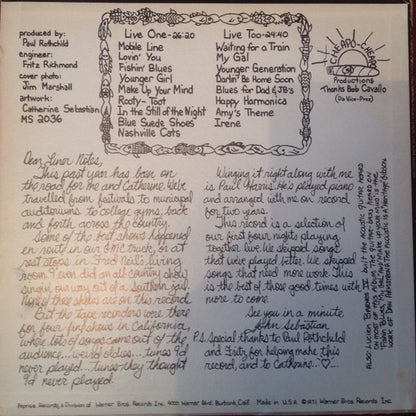 produced by:
Paul Rothchild
engineer:
Fritz Richmond
cover photo:
Jim Marshall
artwork:
Catherine Sebastian
MS 2036
Live One-26:20
Mobile Line
Lovin' You
Fishin' Blues
Younger Girl
Make Up Your Mind
Rooty-Toot
In the Still of the Night
Blue Suede Shoes
Nashville Cats
Live Too-24:40
Waiting for a Train
My Gal
Younger Generation
Darlin' Be Home Soon
Blues for Dad & JB's
Happy Harmonica
Amy's Theme
Irene
CHEAPO-CHEAPO
Productions
Thanks Bob Cavallo
(Da Vice-Prez)
Dear Liner Notes,
This past year has been on
the road for me and Catherine. We've
travelled from festivals to municipal
auditoriums to college gyms, back
and forth across the country.
Some of the best shows happened
en route in our GMC truck, or at
rest stops in Fred Neil's living
room. I even did an all-country show
singin' our way out of a Southern jail.
None of these shows are on this record.
But the tape recorders were there
for four fun/shows in California,
where lots of songs came out of the
audience...weird oldies...tunes I'd
never played...tunes they thought
I'd never played.
Winging it right along with me
is Paul Harris. He's played piano
and arranged with me on record
for two years.
This record is a selection of
our first four nights playing
together live. We skipped songs
that we've played better. We skipped
songs that need more work. This
is the best of those good times with
more to come.
See you in a minute,
John Sebastian
P.S. Special thanks to Paul Rothchild
and Fritz for helping make this
record, and to Catherine...♡...
ALSO: Lucien Barnes IV built the acoustic guitar heard
on most of this album. The guitar
Reprise Records, a Division of Warner Bros. Records Inc., 4000 Warner Blvd. Burbank, Calif. Made in U.S.A. ©1971 Warner Bros. Records Inc.